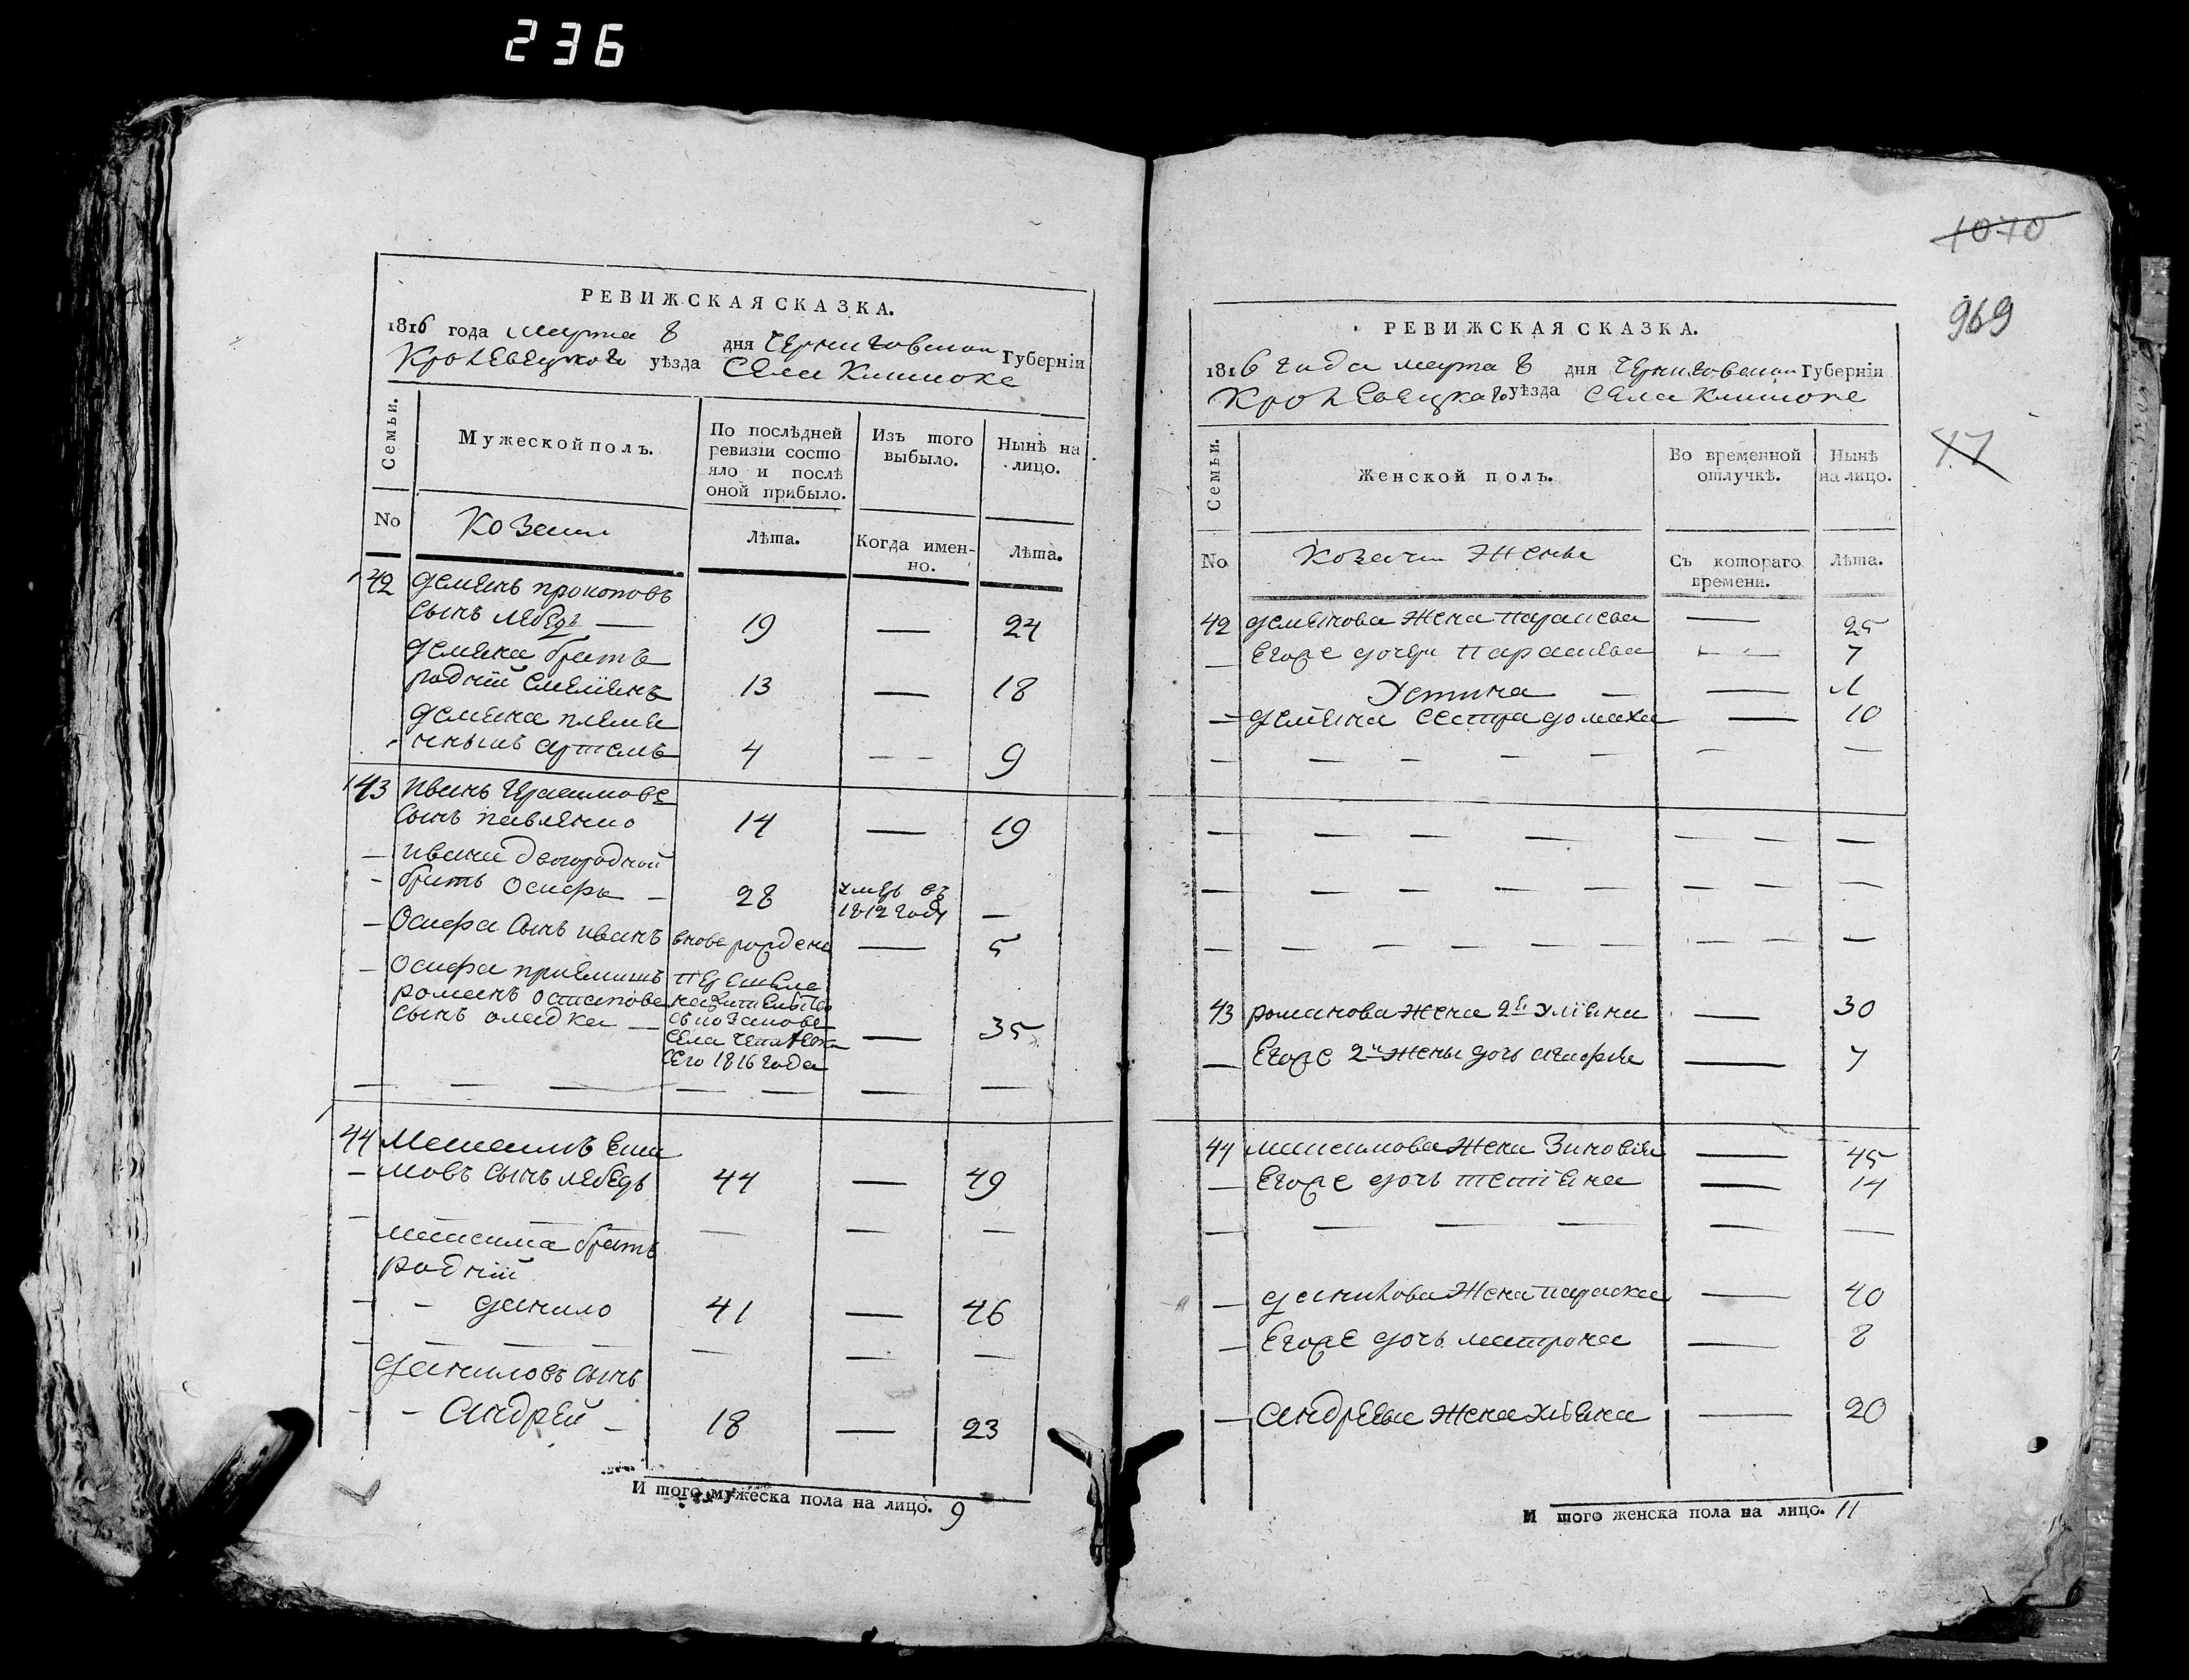 236
РЕВИЖСКАЯ СКАЗКА.
1816 года марта 8 дня Черниговской Губерніи
Кролевецкого уѣзда Села Клишокъ
Семьи.
Мужеской полъ.
По послѣдней ревизіи состояло и послѣ оной прибыло.
Изъ того выбыло.
Нынѣ на лицо.
No
Козаки
Лѣта.
Когда именно.
Лѣта.
42 Демянъ прокоповъ
сынъ лебедь — 19 — 24
Демяна братъ
родній Емеліянъ 13 — 18
Демяна племе
нныкъ артемъ 4 — — 9
43 Иванъ Герасимовъ
сынъ павленко 14 — 19
— ивана двоюродной
— братъ Осипъ — 28 умеръ въ 1812 году —
— Осифа сынъ иванъ вновь рожденъ — 5
— Осифа приемышъ
романъ остаповъ
сынъ оладка — 35
села
сего 1816 года
— — — — — — —
44 Максимъ
— мовъ сынъ лебедь 44 — 49
— — — — — —
максима братъ
родній
— — данило 41 — 46
— — — — — — —
даниловъ сынъ
— — Андрей — 18 — 23
И того мужеска пола на лицо. 9
1070
969
77
РЕВИЖСКАЯ СКАЗКА.
1816 года марта 8 дня Черниговской Губерніи
Кролевецкаго уѣзда Села Клишокъ
Семьи.
Женской полъ.
Во временной отлучкѣ.
Нынѣ на лицо.
No
Козачи Жены
Съ котораго времени.
Лѣта.
42 Демянова Жена Параскева — 25
— Егоже дочери Параскева — — 7
Устина — — 1
— Демяна сестра домаха — 10
— — — — — — —
— — — — — — —
— — — — — — —
— — — — — — — — —
43 романова Жена 2я улияна — 30
— Егоже 2й Жены дочь агафия — 7
44 максимова Жена Зиновия — 45
— Егоже дочь татияна — 14
— — — — — —
— данилова Жена параска — 40
— Егоже дочь матрона — 8
— Андреева Жена улияна — 20
И того женска пола на лицо. 11